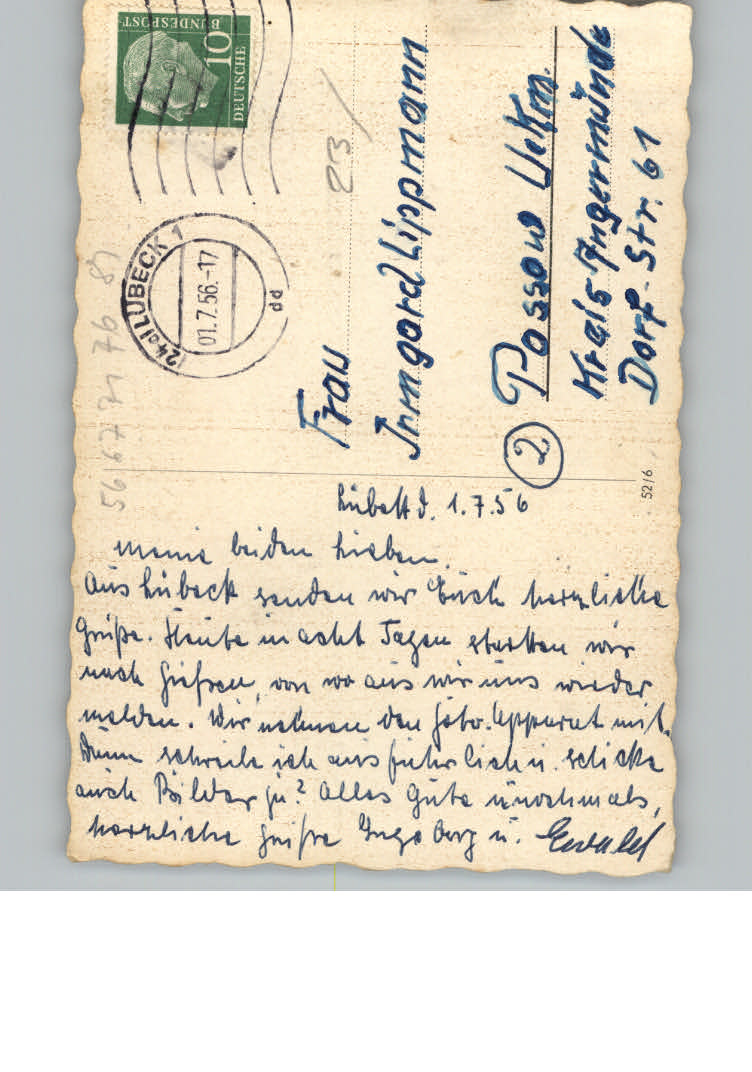 DEUTSCHE
BUNDESPOST
10
(24a) LÜBECK 1
01.7.56.-17
dd
23
Frau
Irmgard Lippmann
(2) Passow Uckm.
Kreis Angermünde
Dorf-Str. 61
52/6
Lübeck d. 1.7.56
Meine beiden Lieben.
Aus Lübeck senden wir Euch herzliche
Grüße. Heute in acht Tagen starten wir
nach Gießen, von wo aus wir uns wieder
melden. Wir nehmen den Foto-Apparat mit.
Dann schreibe ich ausführlich u. schicke
auch Bilder zu? Alles Gute u nochmals,
herzliche Grüße Ingeborg u. Ewald